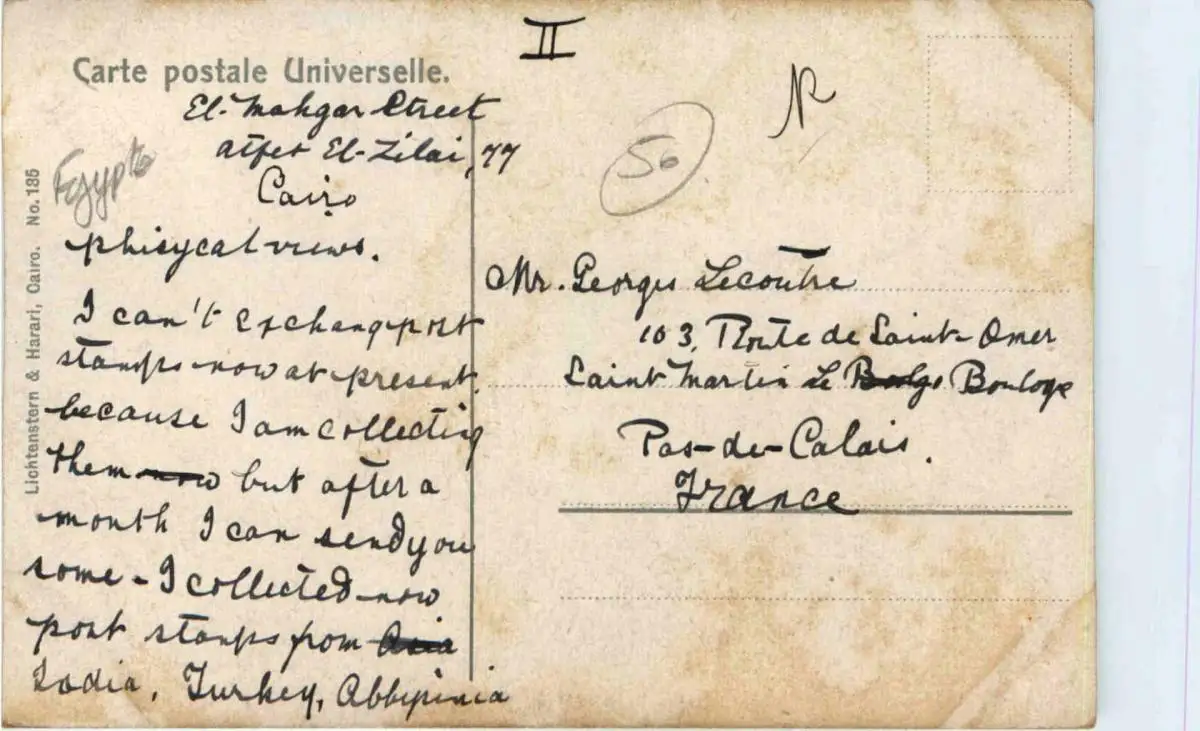 II
Carte postale Universelle.
El-Mahgar Street
El-Zilai, 77
Cairo
Egypte
phisycal views.
I can't exchang post
stamps now at present.
because I am collecting
them now but after a
month I can send you
some - I collected now
post stamps from Asia
India, Turkey, Abbysinia
Lichtenstern & Harari, Cairo. No. 135
56
Mr. Georges Lecoutre
103, Route de Saint-Omer
Saint Martin Le Bouloge
Pas-de-Calais.
France